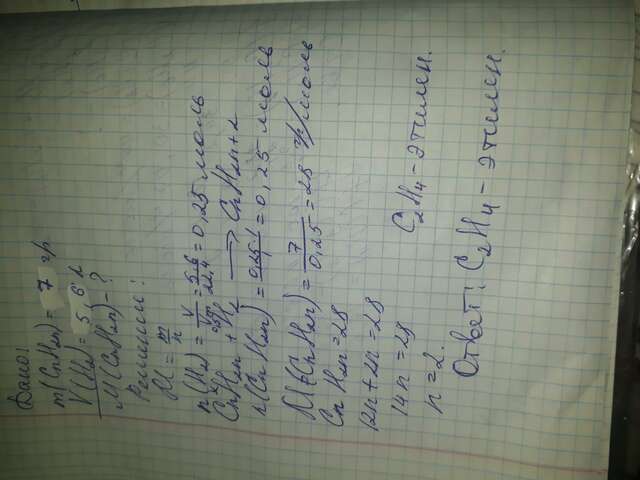 Дано:
m(CnH2n) = 7 гр
V(H2) = 5,6 л
M(CnH2n) - ?
Решение:
M = m/n
n(H2) = V/Vm = 5,6/22,4 = 0,25 моль
CnH2n + H2 → CnH2n+2
n(CnH2n) = 0,25·1/1 = 0,25 моль
M(CnH2n) = 7/0,25 = 28 гр/моль
CnH2n = 28
12n + 2n = 28
14n = 28
n = 2.
C2H4 - этилен.
Ответ: C2H4 - этилен.